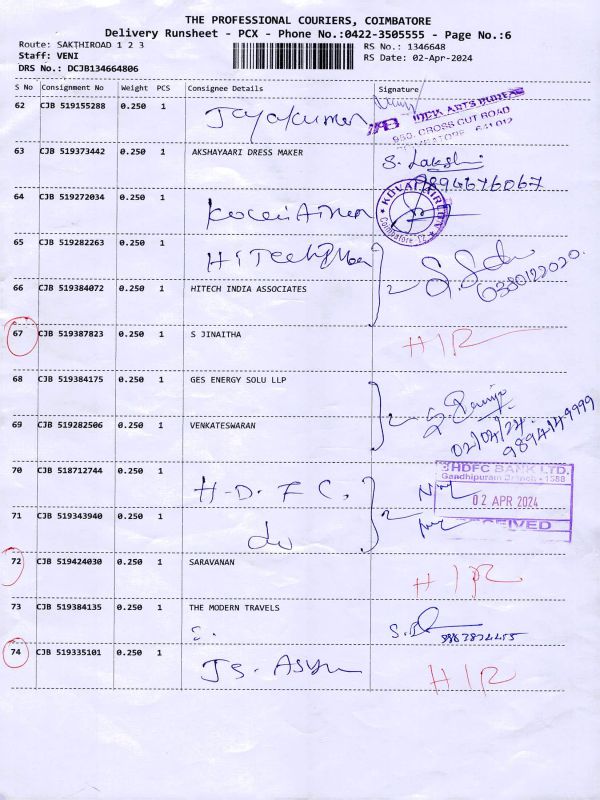 THE PROFESSIONAL COURIERS, COIMBATORE
Delivery Runsheet - PCX - Phone No.:0422-3505555 - Page No.:6
Route: SAKTHIROAD 1 2 3
RS No.: 1346648
Staff: VENI
RS Date: 02-Apr-2024
DRS No.: DCJB134664806
S No Consignment No Weight PCS Consignee Details Signature
62 CJB 519155288 0.250 1 Jayakumar
ARTS
CROSS CUT ROAD
641 012
63 CJB 519373442 0.250 1 AKSHAYAARI DRESS MAKER S. Lakshmi
9894676067
64 CJB 519272034 0.250 1
Coimbatore. 12
65 CJB 519282263 0.250 1 Hitech
66 CJB 519384072 0.250 1 HITECH INDIA ASSOCIATES 2
67 CJB 519387823 0.250 1 S JINAITHA HIR
68 CJB 519384175 0.250 1 GES ENERGY SOLU LLP 2
69 CJB 519282506 0.250 1 VENKATESWARAN 02/04/24
70 CJB 518712744 0.250 1 H.D.F.C.
HDFC BANK LTD.
Gandhipuram Branch - 1588
02 APR 2024
RECEIVED
71 CJB 519343940 0.250 1 do 2
72 CJB 519424030 0.250 1 SARAVANAN HIR
73 CJB 519384135 0.250 1 THE MODERN TRAVELS
74 CJB 519335101 0.250 1 HIR